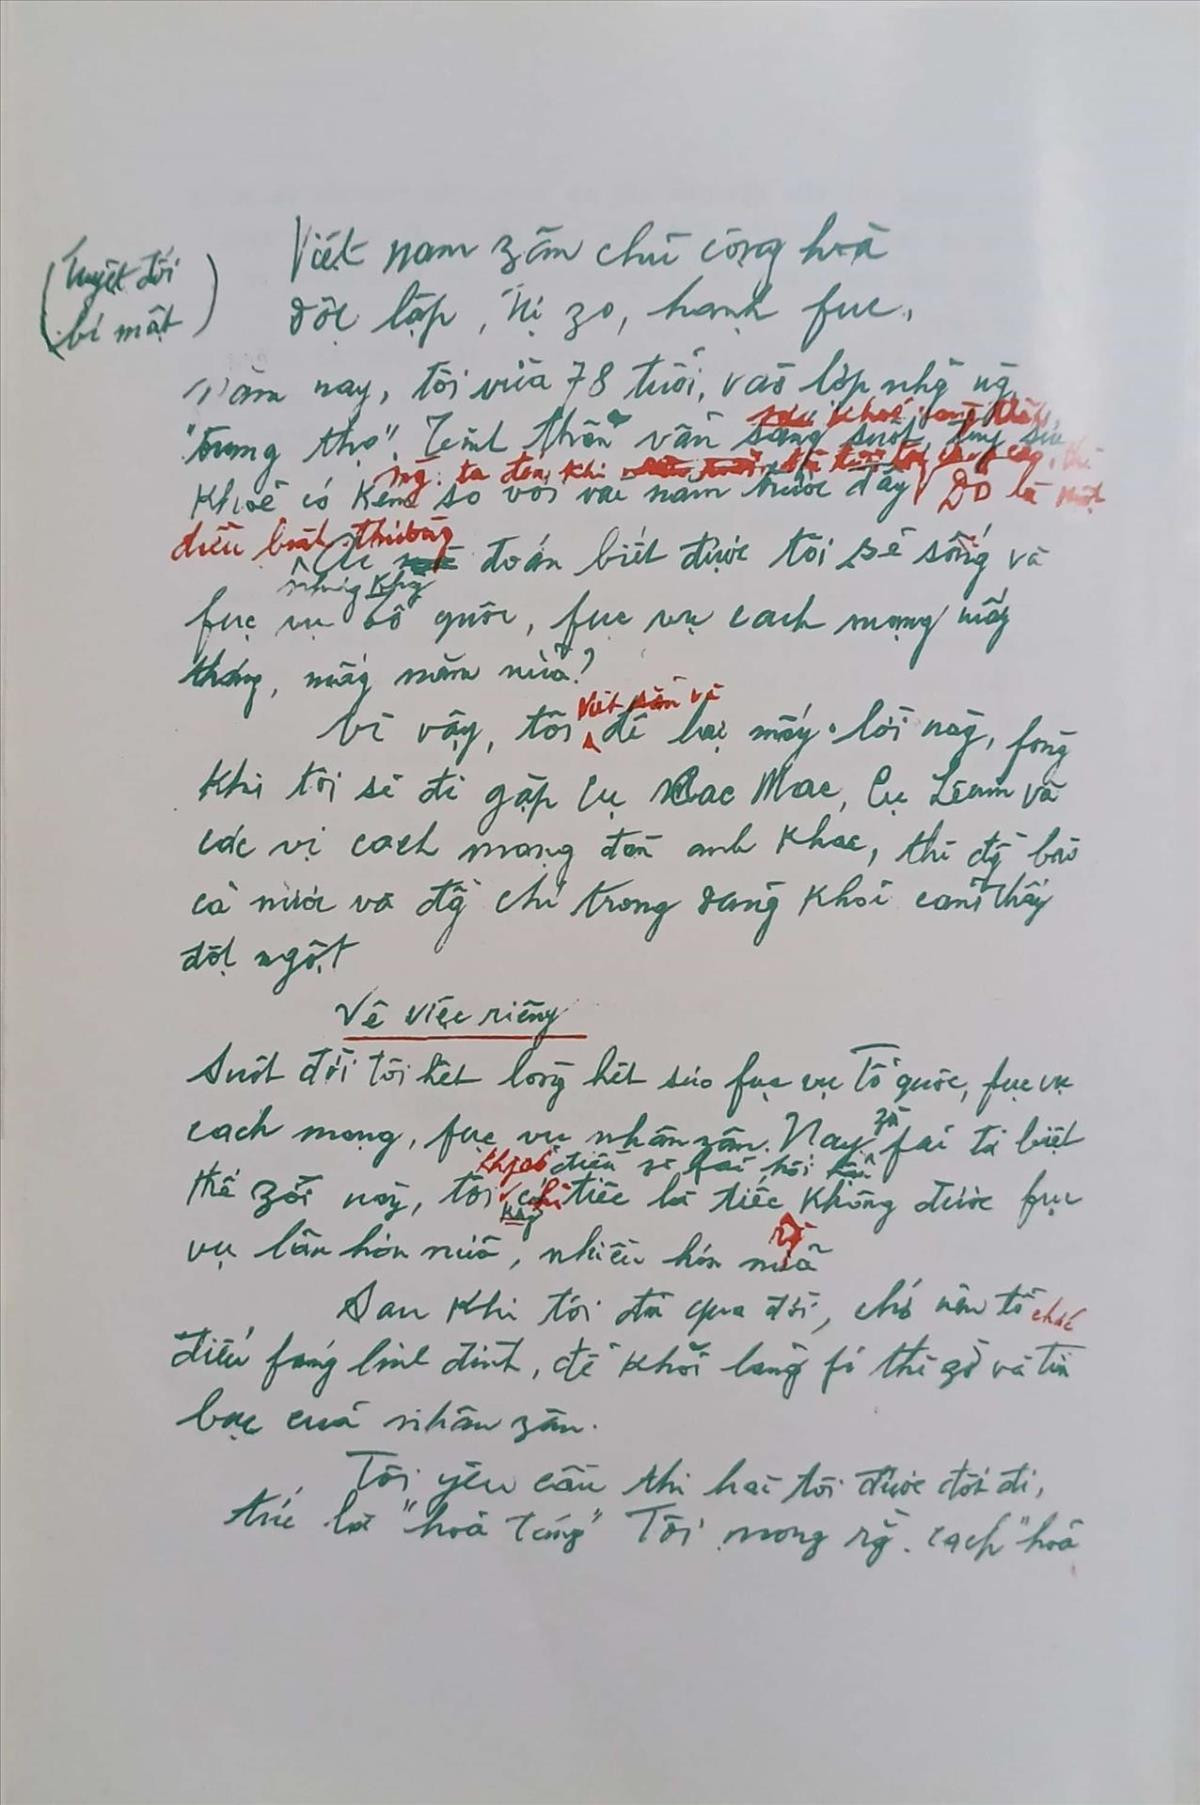 (Tuyệt đối
bí mật)
Việt nam zân chủ cộng hoà
độc lập, tự zo, hạnh fuc.
Năm nay, tôi vừa 78 tuổi, vào lớp nhg ng
"trung thọ". Tinh thần vẫn sáng suốt, tuy sức
khoẻ có kém so với vài năm trước đây
ng: ta đến khi
Đó là một
điều bình thường
Nhưng ai đoán biết được tôi sẽ sống và
fục vụ tổ quốc, fục vụ cách mạng mấy
tháng, mấy năm nữa?
Vì vậy, tôi viết sẵn và để lại mấy lời này, fòng
khi tôi sẽ đi gặp cụ Cac Mac, Cụ Lênin và
các vị cách mạng đàn anh khác, thì đg bào
cả nước và đg chí trong đảng khỏi cảm thấy
đột ngột
Về việc riêng
Suốt đời tôi hết lòng hết sức fục vụ Tổ quốc, fục vụ
cách mạng, fục vụ nhân zân. Nay zù fải từ biệt
thế zới này, tôi khg có điều gì fải hối hận
chỉ tiếc là tiếc không được fục
vụ lâu hơn nữa, nhiều hơn nữa
Sau khi tôi đã qua đời, chớ nên tổ chức
điếu fúng linh đình, để khỏi lãng fí thì zờ và tiền
bạc của nhân zân.
Tôi yêu cầu thi hài tôi được đốt đi,
tức là "hoả táng" Tôi mong rg cách "hoả